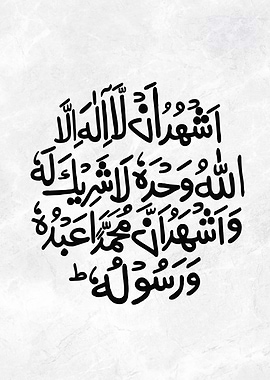 اَشْهَدُ اَنْ لَّاۤ اِلٰهَ اِلَّا
اللّٰهُ وَحْدَهٗ لَا شَرِيْكَ لَهٗ
وَاَشْهَدُ اَنَّ مُحَمَّدًا عَبْدُهٗ
وَرَسُوْلُهٗ ؕ